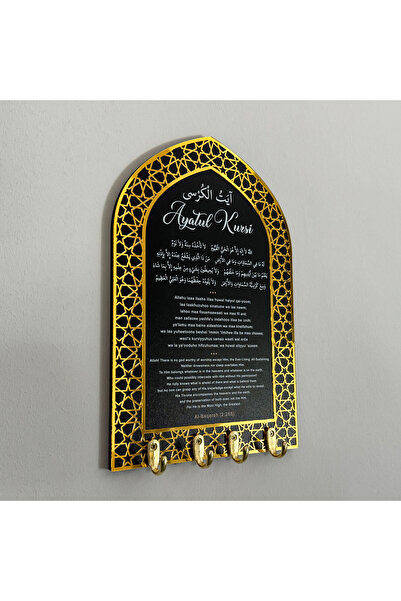 آيَتُ الْكُرْسِى
Ayatul Kursi
اللهُ لَا إِلٰهَ إِلَّا هُوَ الْحَيُّ الْقَيُّومُ لَا تَأْخُذُهُ سِنَةٌ وَلَا نَوْمٌ
لَهُ مَا فِي السَّمَاوَاتِ وَمَا فِي الْأَرْضِ مَنْ ذَا الَّذِي يَشْفَعُ عِنْدَهُ إِلَّا بِإِذْنِهِ
يَعْلَمُ مَا بَيْنَ أَيْدِيهِمْ وَمَا خَلْفَهُمْ وَلَا يُحِيطُونَ بِشَيْءٍ مِنْ عِلْمِهِ إِلَّا بِمَا شَاءَ
وَسِعَ كُرْسِيُّهُ السَّمَاوَاتِ وَالْأَرْضَ وَلَا يَئُودُهُ حِفْظُهُمَا وَهُوَ الْعَلِيُّ الْعَظِيمُ
Allahu laaa ilaaha illaa huwal haiyul qai-yoom;
laa taakhuzuhoo sinatunw wa laa nawm;
lahoo maa fissamaawaati wa maa fil ard;
man zallazee yashfa'u indahooo illaa be iznih;
ya'lamu maa baina aideehim wa maa khalfahum;
wa laa yuheetoona beshai 'immin 'ilmihee illa be maa shaaaa;
wasi'a kursiyyuhus samaa waati wal arda
wa la ya'ooduho hifzuhumaa; wa huwal aliyyul 'azeem
Allah! There is no god worthy of worship except Him, the Ever-Living, All-Sustaining.
Neither drowsiness nor sleep overtakes Him.
To Him belongs whatever is in the heavens and whatever is on the earth.
Who could possibly intercede with Him without His permission?
He fully knows what is ahead of them and what is behind them,
but no one can grasp any of His knowledge except what He wills to reveal.
His Throne encompasses the heavens and the earth,
and the preservation of both does not tire Him.
For He is the Most High, the Greatest.
Al-Baqarah (2:255)